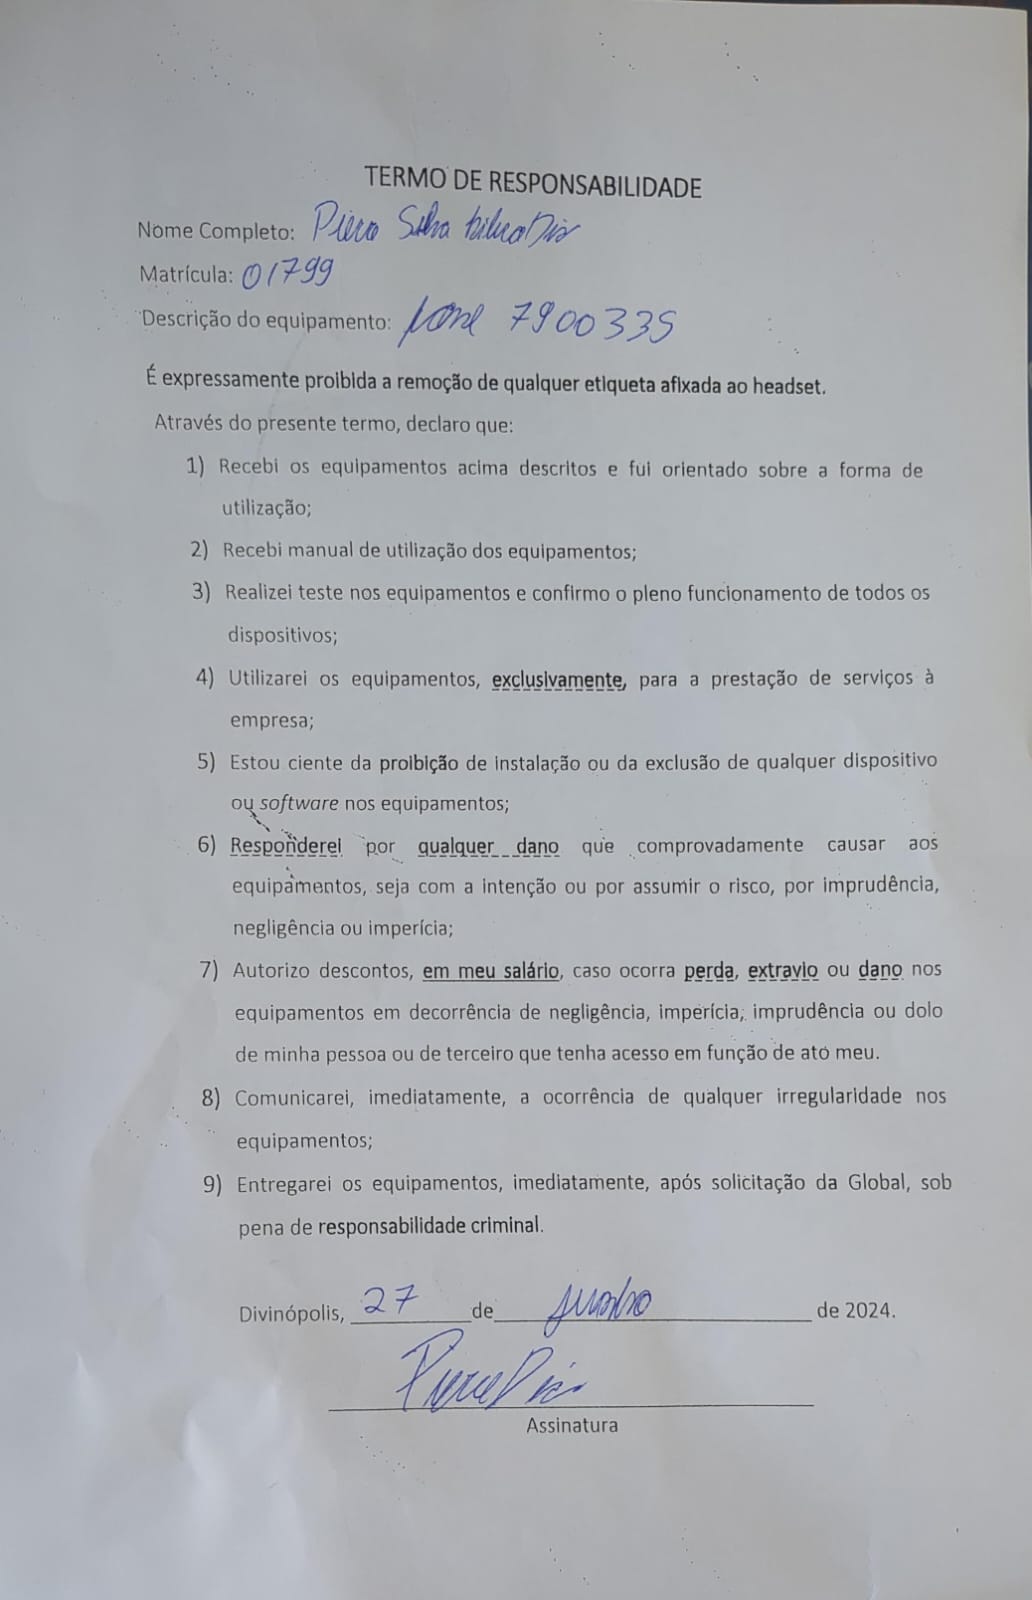 TERMO DE RESPONSABILIDADE
Nome Completo: Piero Silva Dias
Matrícula: 01799
Descrição do equipamento: fone 7900335
É expressamente proibida a remoção de qualquer etiqueta afixada ao headset.
Através do presente termo, declaro que:
1) Recebi os equipamentos acima descritos e fui orientado sobre a forma de
utilização;
2) Recebi manual de utilização dos equipamentos;
3) Realizei teste nos equipamentos e confirmo o pleno funcionamento de todos os
dispositivos;
4) Utilizarei os equipamentos, exclusivamente, para a prestação de serviços à
empresa;
5) Estou ciente da proibição de instalação ou da exclusão de qualquer dispositivo
ou software nos equipamentos;
6) Responderei por qualquer dano que comprovadamente causar aos
equipamentos, seja com a intenção ou por assumir o risco, por imprudência,
negligência ou imperícia;
7) Autorizo descontos, em meu salário, caso ocorra perda, extravio ou dano nos
equipamentos em decorrência de negligência, imperícia, imprudência ou dolo
de minha pessoa ou de terceiro que tenha acesso em função de ato meu.
8) Comunicarei, imediatamente, a ocorrência de qualquer irregularidade nos
equipamentos;
9) Entregarei os equipamentos, imediatamente, após solicitação da Global, sob
pena de responsabilidade criminal.
Divinópolis, 27 de junho de 2024.
Assinatura